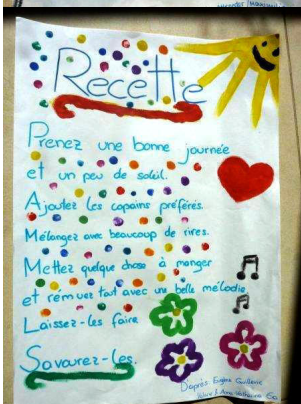 Recette
Prenez une bonne journée
et un peu de soleil.
Ajoutez les copains préférés.
Mélangez avec beaucoup de rires.
Mettez quelque chose à manger
et rémuez tout avec une belle mélodie
Laissez-les faire
Savourez-les.
D'après Eugène Guillevic